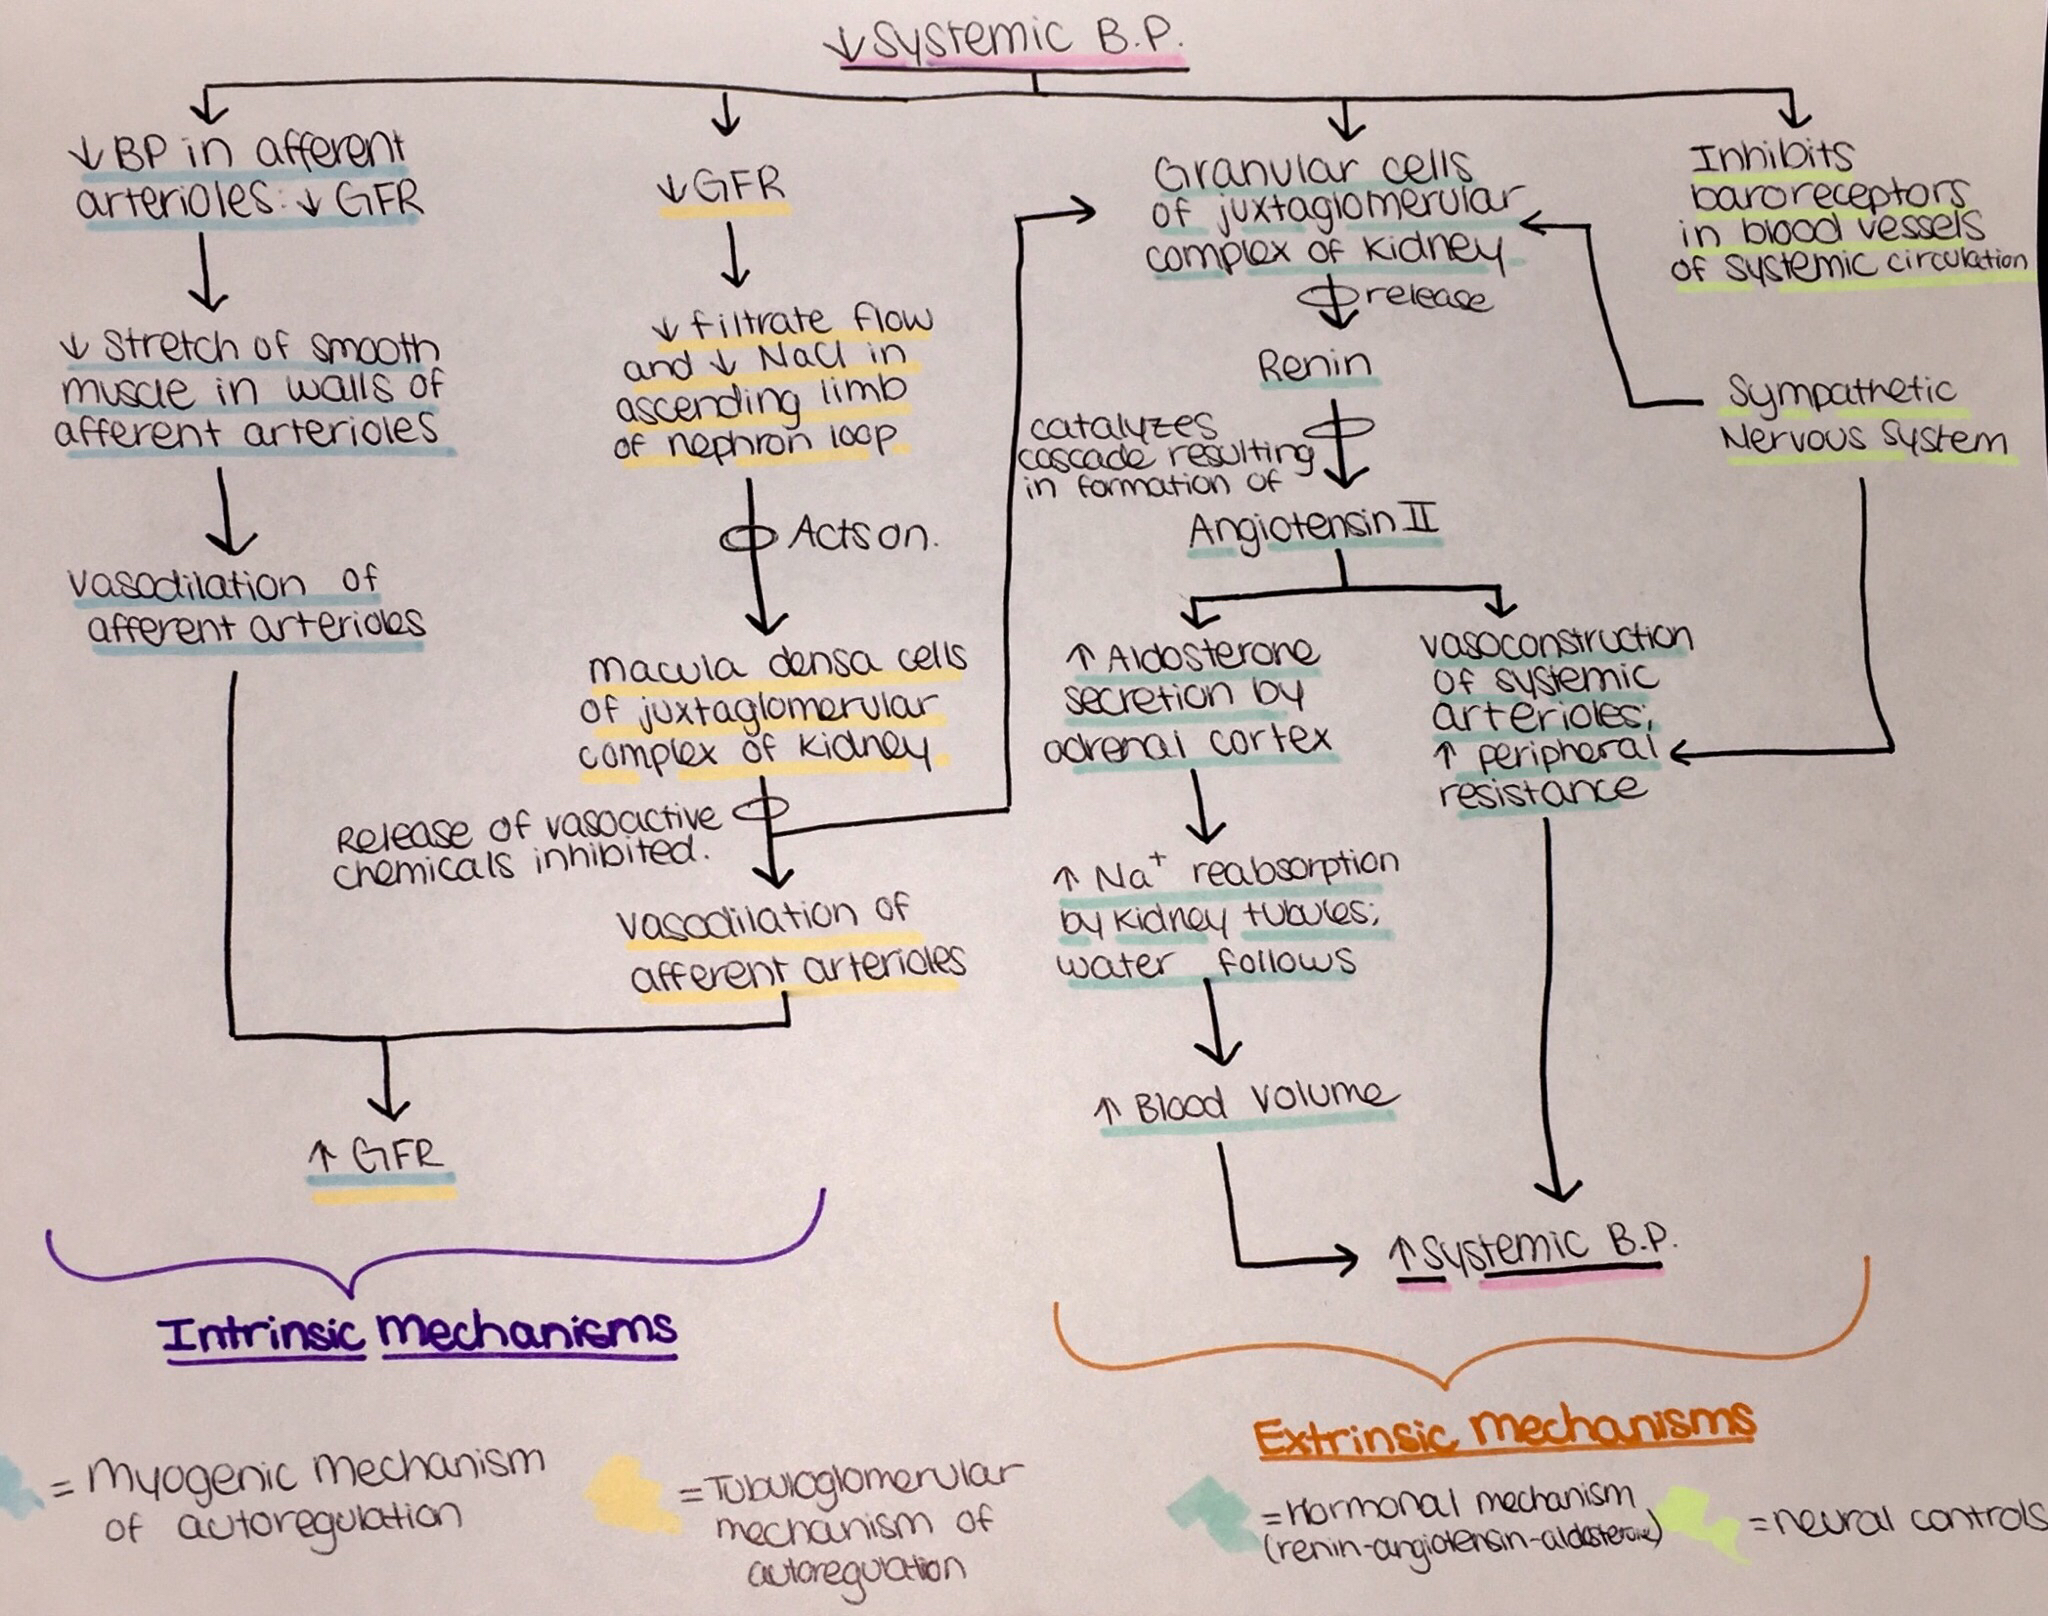 ↓ Systemic B.P.
↓ BP in afferent
arterioles: ↓ GFR
↓ Stretch of smooth
muscle in walls of
afferent arterioles
vasodilation of
afferent arterioles
↓ GFR
↓ filtrate flow
and ↓ NaCl in
ascending limb
of nephron loop
Acts on.
macula densa cells
of juxtaglomerular
complex of kidney
Release of vasoactive
chemicals inhibited.
vasodilation of
afferent arterioles
↑ GFR
Granular cells
of juxtaglomerular
complex of kidney
release
Renin
catalyzes
cascade resulting
in formation of
Angiotensin II
↑ Aldosterone
secretion by
adrenal cortex
↑ Na⁺ reabsorption
by kidney tubules;
water follows
↑ Blood volume
vasoconstruction
of systemic
arterioles;
↑ peripheral
resistance
Inhibits
baroreceptors
in blood vessels
of systemic circulation
Sympathetic
Nervous System
↑ Systemic B.P.
Intrinsic Mechanisms
Extrinsic Mechanisms
= Myogenic Mechanism
of autoregulation
= Tubuloglomerular
mechanism of
autoregulation
= Hormonal mechanism
(renin-angiotensin-aldosterone)
= neural controls